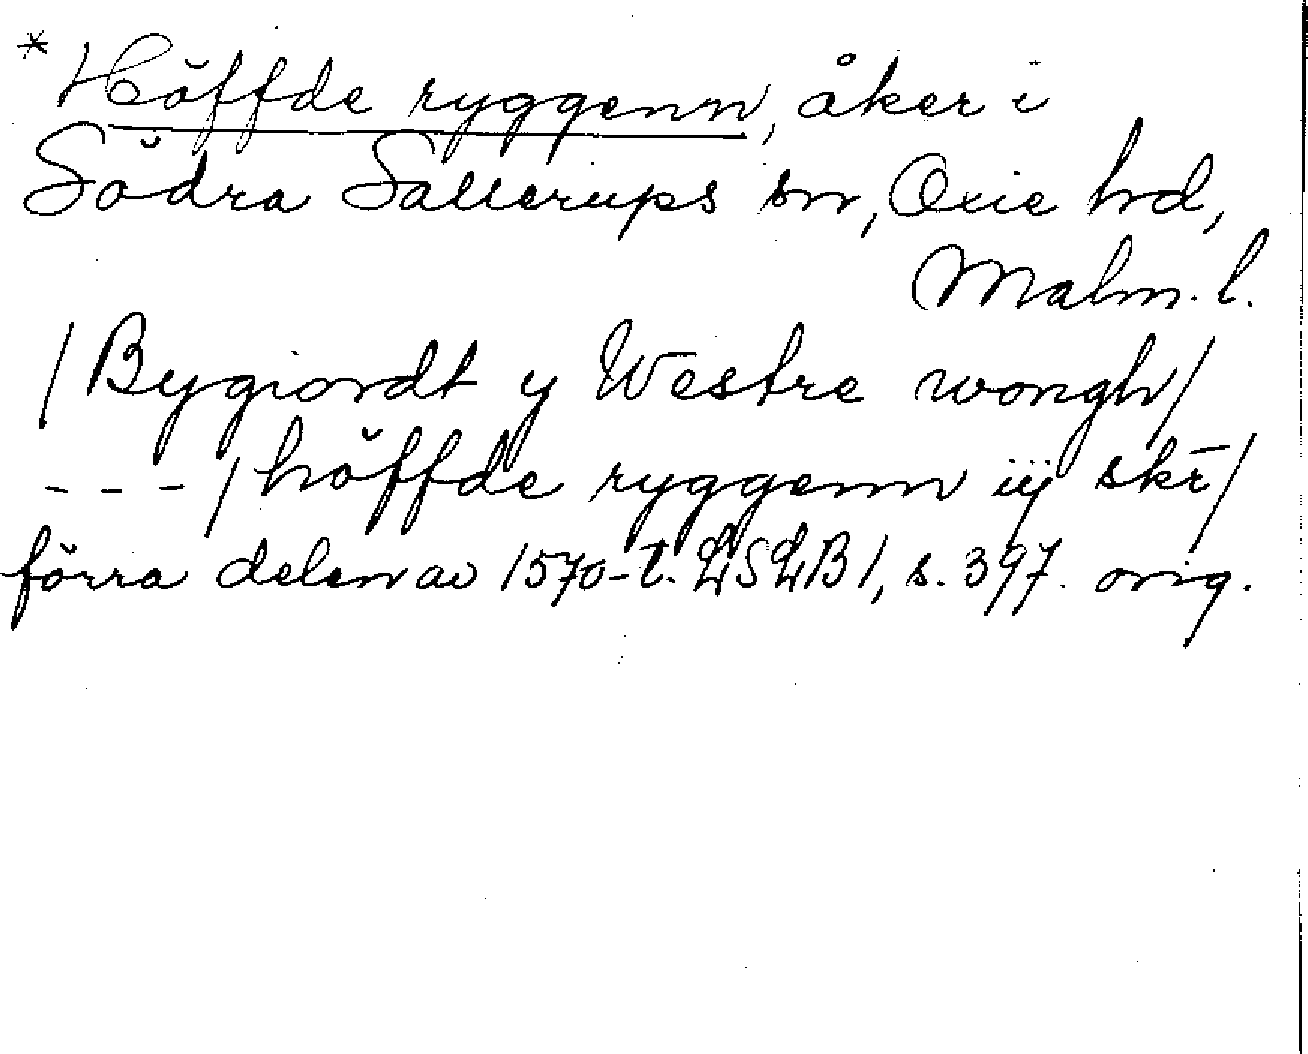 * Höffde ryggenn, åker i
Södra Sallerups sn, Oxie hd,
Malm. l.
/Bygiordt y Westre wongh/
- - - /höffde ryggenn iij skr̄/
förra delen av 1570-t. LSLB 1, s. 397. orig.